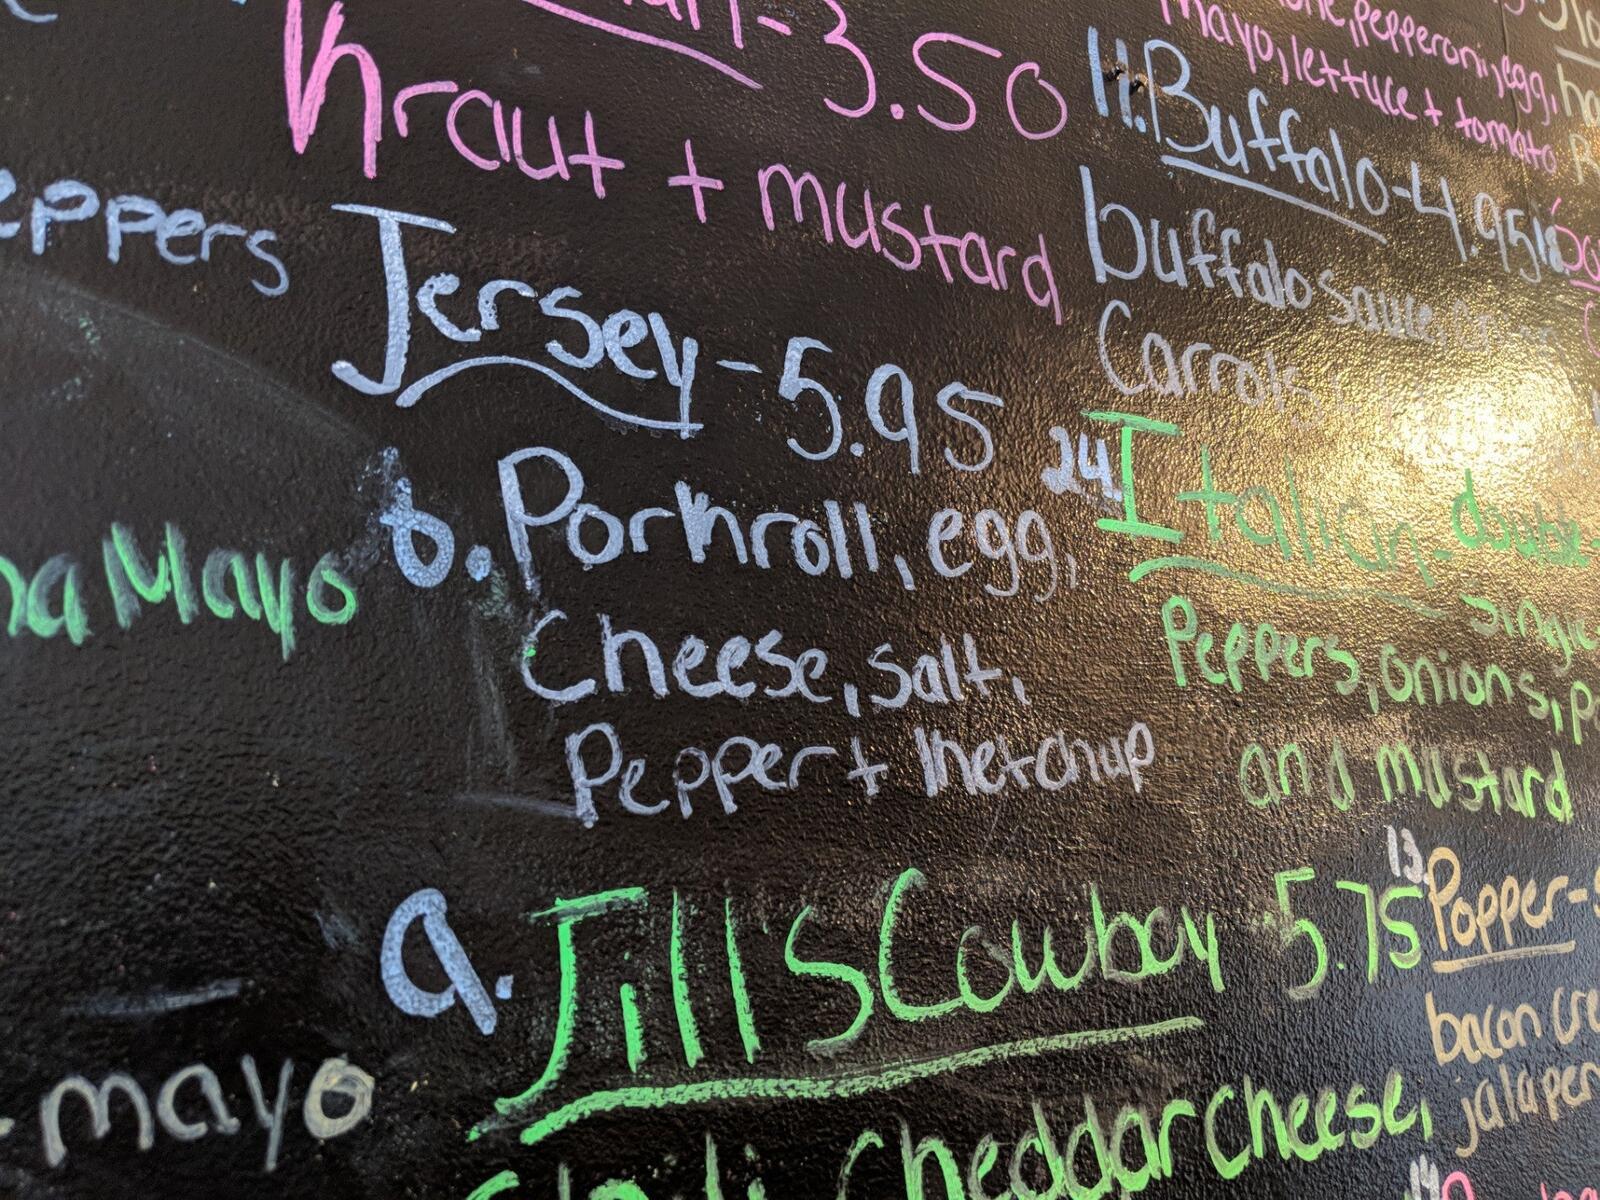 -3.50
Kraut + mustard
eppers
Jersey-5.95
8. Porkroll, egg,
Cheese, salt,
Pepper + Ketchup
Mayo
9. Jill's Cowboy 5.75
cheddar cheese,
mayo
pepperoni, egg,
mayo, lettuce + tomato
11. Buffalo-4.95
buffalo sauce,
Carrots
24. Italian-double-
single
Peppers, onions,
and mustard
13. Popper-
bacon